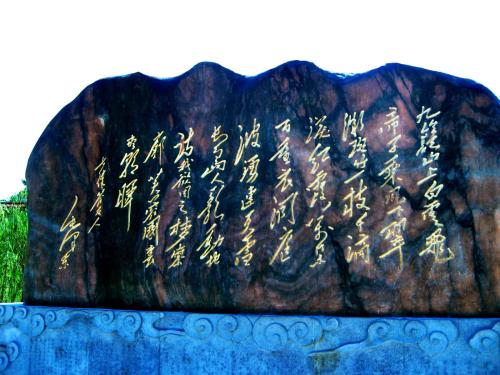 九嶷山上白云飞
帝子乘风下翠
微斑竹一枝千滴
泪红霞万朵
百重衣洞庭
波涌连天雪
长岛人歌动地
诗我欲因之梦寥
廓芙蓉国里
尽朝晖
答友人
毛泽东